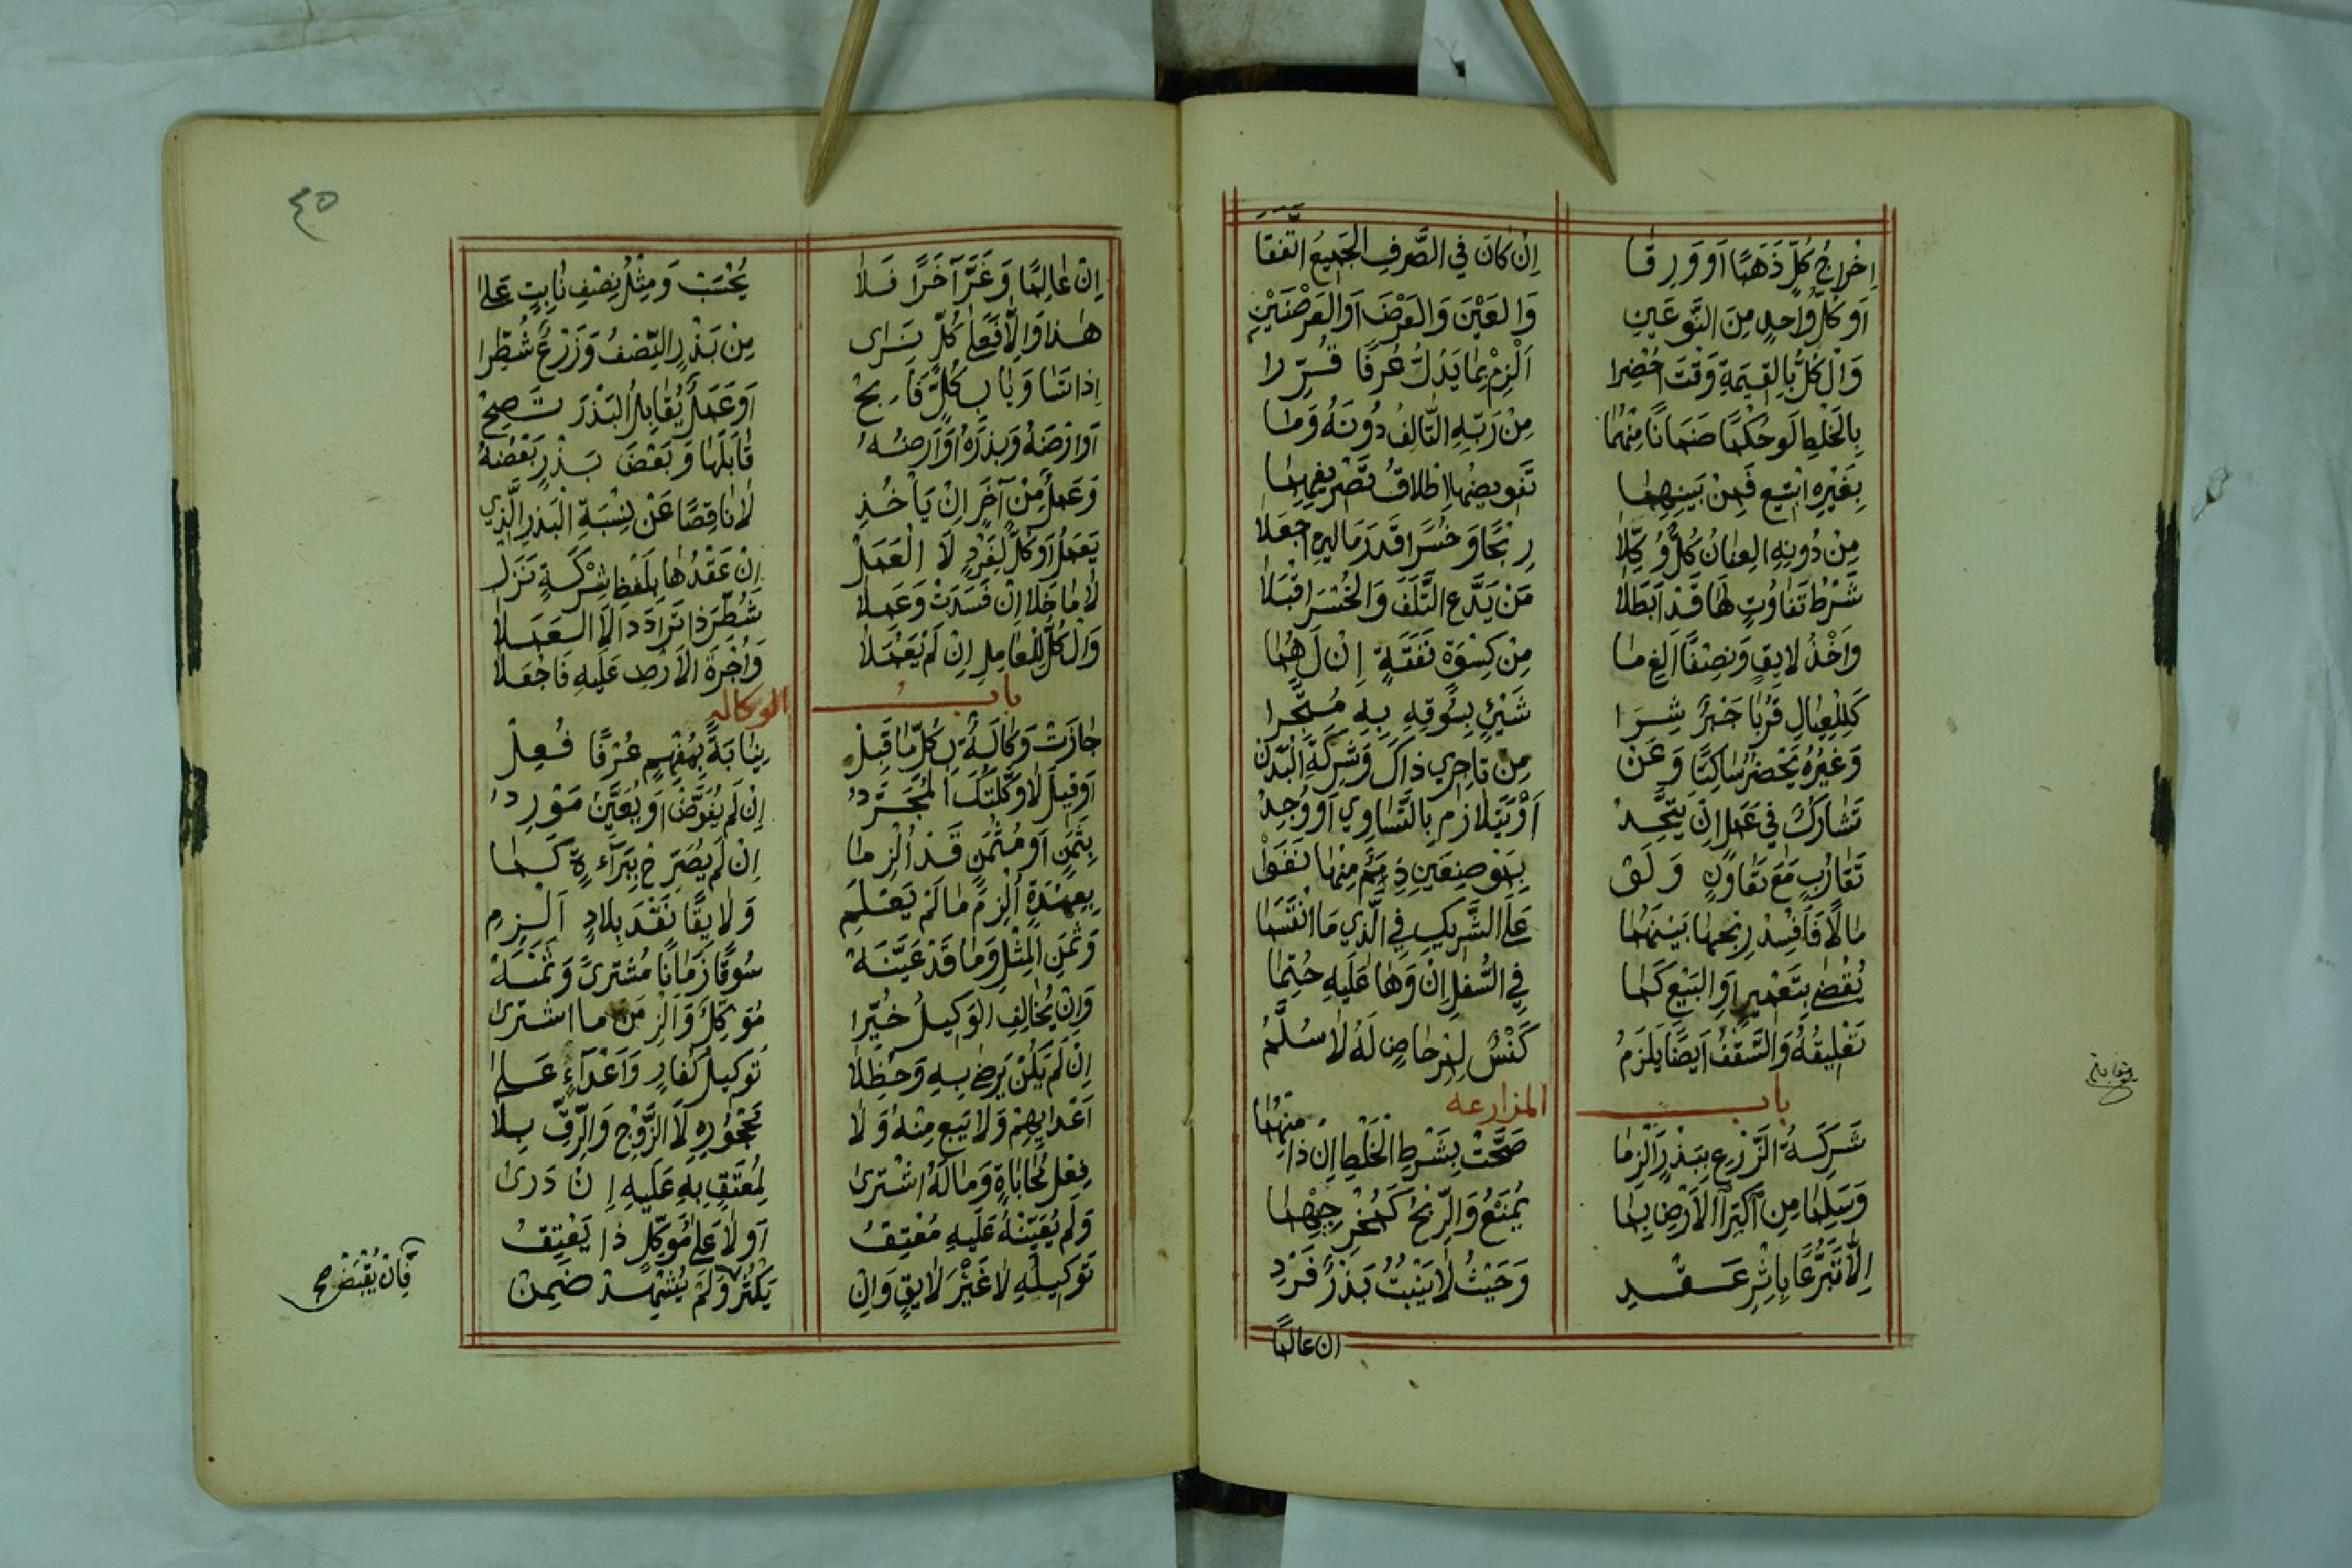 اِخْرَاجُ كُلٍّ ذَهَبًا اَوْ وَرِقَا اِنْ كَانَ فِي الصَّرْفِ الجَمِيعُ اتَّفَقَا
اَوْ كُلُّ وَاحِدٍ مِنَ النَّوْعَيْنِ وَالعَيْنَ وَالعَرْضَ اَوِ العَرْضَيْنِ
وَالْكُلُّ بِالقِيمَةِ وَقْتَ اُحْضِرَا اَلْزِمْ بِمَا يَدُلُّ عُرْفًا قُرِّرَا
بِالخَلْطِ لَوْ حُكْمًا ضَمَانًا مِنْهُمَا مِنْ رَبِّهِ التَّالِفُ دُونَهُ وَمَا
بِغَيْرِهِ ابْتِيعَ فَبَيْنَ بَيْنِهِمَا تَفْوِيضُهَا اِطْلَاقُ تَصْرِيفِهِمَا
مِنْ دُونِهِ العِنَانُ كُلٌّ وُكِّلَا رِبْحًا وَخُسْرًا قَدْرَ مَالَيْهِ اجْعَلَا
شَرْطُ تَفَاوُتٍ لَهَا قَدْ اَبْطَلَا مَنْ يَدَّعِ التَّلَفَ وَالخُسْرَ اقْبَلَا
وَاَخْذُ لَايِقٍ وَنِصْفًا اَلْغِ مَا مِنْ كِسْوَةٍ نَفَقَةٍ اِنْ لَهُمَا
كَلِلْعِيَالِ قَرُبَا خَيْرُ شِرَا شَيْئٍ بِسُوقِهِ بِهِ مُتَّجِرَا
وَغَيْرُهُ يَحْضُرُ سَاكِتًا وَعَنْ مِن تَاجِرِي ذَاكَ وَشِرْكَةُ البَدَنْ
تَشَارُكٌ فِي عَمَلٍ اِنْ يَتَّحِدْ اَوْ يَتَلَازَمْ بِالتَّسَاوِي اَوْ وُجِدْ
تَقَارُبٍ مَعَ تَعَاوُنٍ وَلَوْ
مَالًا فَاَفْسِدْ رِبْحُهَا بَيْنَهُمَا عَلَى الشَّرِيكِ فِي الَّذِي مَا انْقَسَمَا
يُقْضَى بِتَعْمِيرٍ اَوِ البَيْعِ كَمَا فِي السُّفْلِ اِنْ وَهَا عَلَيْهِ حُتِمَا
تَعْلِيقُهُ وَالسَّقْفُ اَيْضًا يَلْزَمُ كَنْسٌ لِمِرْحَاضٍ لَهُ لَا سُلَّمُ
باب المزارعه
شَرِكَةُ الزَّرْعِ بِبَذْرٍ اَلْزِمَا صَحَّتْ بِشَرْطِ الخَلْطِ اِنْ ذَا مِنْهُمَا
وَسَلِمَا مِنِ اكْتِرَا الاَرْضِ بِمَا يُمْنَعُ وَالرِّبْحُ كَمُخْرَجِهِمَا
اِلَّا تَبَرُّعًا بِاِثْرِ عَقْدِ وَحَيْثُ لَا يَنْبُتُ بَذْرُ فَرْدِ
ان عالما
٤٥
اِنْ عَالِمًا وَغَرَّ آخَرًا فَلَا يُحْسَبْ وَمِثْلُ نِصْفِ نَابِتٍ عَلَى
هٰذَا وَاِلَّا فَعَلَى كُلٍّ يَرَى مِنْ بَذْرٍ النِّصْفُ وَزَرْعٌ شُطِّرَا
اِذَا تَسَاوَيَا بِكُلٍّ فَاَبِحْ اَوْ عَمَلٌ يُقَابِلُ البَذْرَ تَصِحْ
اَوْ اَرْضَهُ وَبَذْرَهُ اَوْ اَرْضُهُ قَابَلَهَا وَبَعْضَ بَذْرٍ بَعْضُهُ
وَعَمَلٌ مِنْ آخَرٍ اِنْ يَاْخُذِ لَا نَاقِصًا عَنْ نِسْبَةِ الْبَذْرِ الَّذِي
يَعْمَلُ اَوْ كُلٌّ لِفَرْدٍ لَا الْعَمَلْ اِنْ عَقْدُهَا بِلَفْظِ شِرْكَةٍ نَزَلْ
لَا مَا خَلَا اِنْ فَسَدَتْ وَعَمِلَا شَطِّرَ ذَا تَرَادَدَا اِلَّا العَمَلَا
وَالكُلُّ لِلْعَامِلِ اِنْ لَمْ يَعْمَلَا وَاُجْرَةُ الاَرْضِ عَلَيْهِ فَاجْعَلَا
باب الوكاله
جَازَتْ وَكَالَةٌ بِكُلِّ مَا قَبِلْ نِيَابَةً بِمُفْهِمٍ عُرْفًا فُعِلْ
اَوْ قِيلَ لَا وَكَّلْتُكَ المُجَرَّدُ اِنْ لَمْ يُفَوَّضْ اَوْ يُعَيَّنْ مَوْرِدُ
بِثَمَنٍ اَوْ مُثْمَنٍ قَدْ اُلْزِمَا اِنْ لَمْ يُصَرِّحْ بِبَرَآءَةٍ كَمَا
بِعُهْدَةٍ اُلْزِمَ مَا لَمْ يَعْلَمِ وَلَايِقًا نَقْدَ بِلَادٍ اَلْزِمِ
وَثَمَنِ المِثْلِ وَمَا قَدْ عَيَّنَهْ سُوقًا زَمَانًا مُشْتَرًى وَثَمَنَهْ
وَاِنْ يُخَالِفِ الوَكِيلُ خُيِّرَا مُوَكِّلٌ وَالزِمَنْ مَا اشْتَرَى
اِنْ لَمْ يَكُنْ يَرْضَى بِهِ وَحُظِلَا تَوكِيلُ كُفَّارٍ وَاَعْدَآءٍ عَلَى
اَعْدَايِهِمْ وَلَا يَبِعْ مِنْهُ وَلَا مَحْجُورِهِ لَا الزَّوْجِ وَالرِّقِّ بِلَا
فِعْلِ مُحَابَاةٍ وَمَا لَهُ اشْتَرَى لِمُعْتَقٍ بِهِ عَلَيْهِ اِنْ دَرَى
وَلَمْ يُعَيِّنْهُ عَلَيْهِ مُعْتَقُ اَوْ لَا عَلَى مُوَكِّلٍ ذَا يَعْتِقُ
تَوكِيلُهُ لَا غَيْرَ لَايِقٍ وَاِنْ يَكْثُرْ وَلَمْ يُشْهِدْ ضَمِنْ
فَاِنْ يُقْبَضْ صح